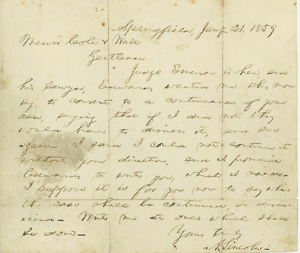 Springfield, Jany. 21. 1859
Messrs Cole & Wall
Gentlemen
Judge Emerson is here, and
his lawyer, wanted me
to consent to a continuance of your
case, saying that if I did not they
would have to dismiss it, and sue
again. I said I could not continue it
without your direction, and I promised
to write you, which I now do.
I suppose it is for you now to say whether
the case shall be continued, or dismis-
Write me at once which shall
be done.
Yours truly
A. Lincoln